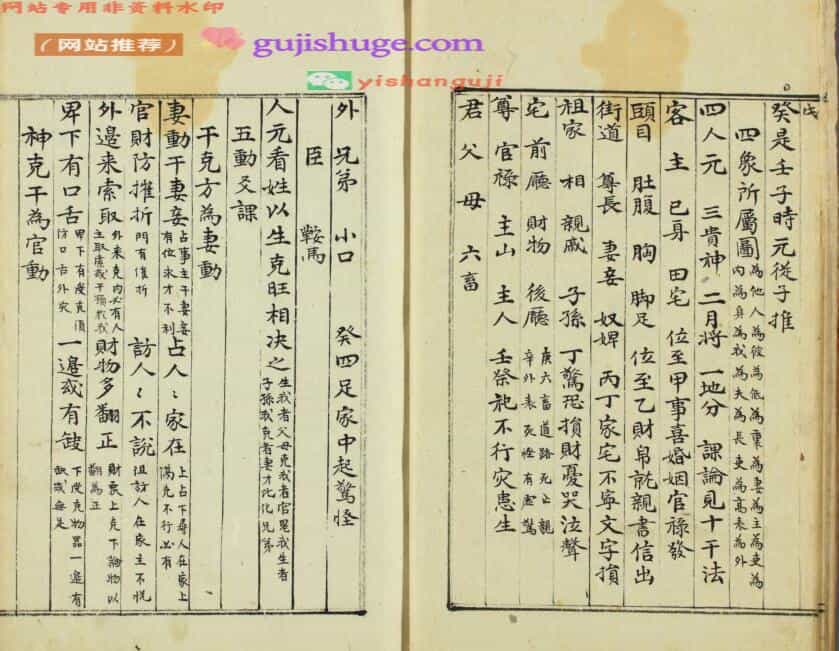 网站专用非资料水印
（网站推荐）
gujishuge.com
yishanguji
戊癸是壬子時元從子推
四象所屬圖
四人元 三貴神 二月將 一地分 課論見十干法
客 主 已身 田宅 位至甲事喜婚姻官祿發
頭目 肚腹 胸 脚足 位至乙財帛就親書信出
街道 尊長 妻妾 奴婢 丙丁家宅不寧文字損
祖家 相親戚 子孫 丁驚恐損財憂哭泣聲
宅 前廳 財物 後廳 庚六畜道路死亡親
辛外表死怪有虛驚
尊 官祿 主山 主人 壬祭祀不行灾患生
君 父母 六畜
外 兄弟 小口 癸四足家中起驚怪
臣 鞍馬
人元看姓以生克旺相决之 生我者父母克我者官鬼我生者
子孫我克者妻才比化兄弟
五動爻課
干克方為妻動
妻動干妻妾 占事主干妻妾
有位求才不利 占人人家在 上占下尋人在家上
官財防摧折 門有摧折 訪人人不說 但訪人在家主不悅
外邊来索取 外来克内必有人 財物多翻正 財喪上克下論物以
翻為正
卑下有口舌 卑下有受克須
防口舌外灾 一邊或有缺 下受克物器一邊有
缺或無足
神克干為官動